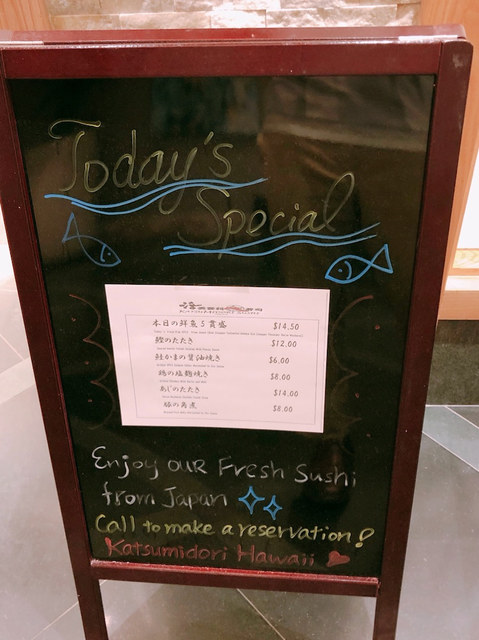 Today's
Special
本日の鮮魚5貫盛 $14.50
鰹のたたき $12.00
鮭かまの醤油焼き $6.00
鶏の塩麹焼き $8.00
あじのたたき $14.00
豚の角煮 $8.00
Enjoy our Fresh Sushi
from Japan
Call to make a reservation!
Katsumidori Hawaii